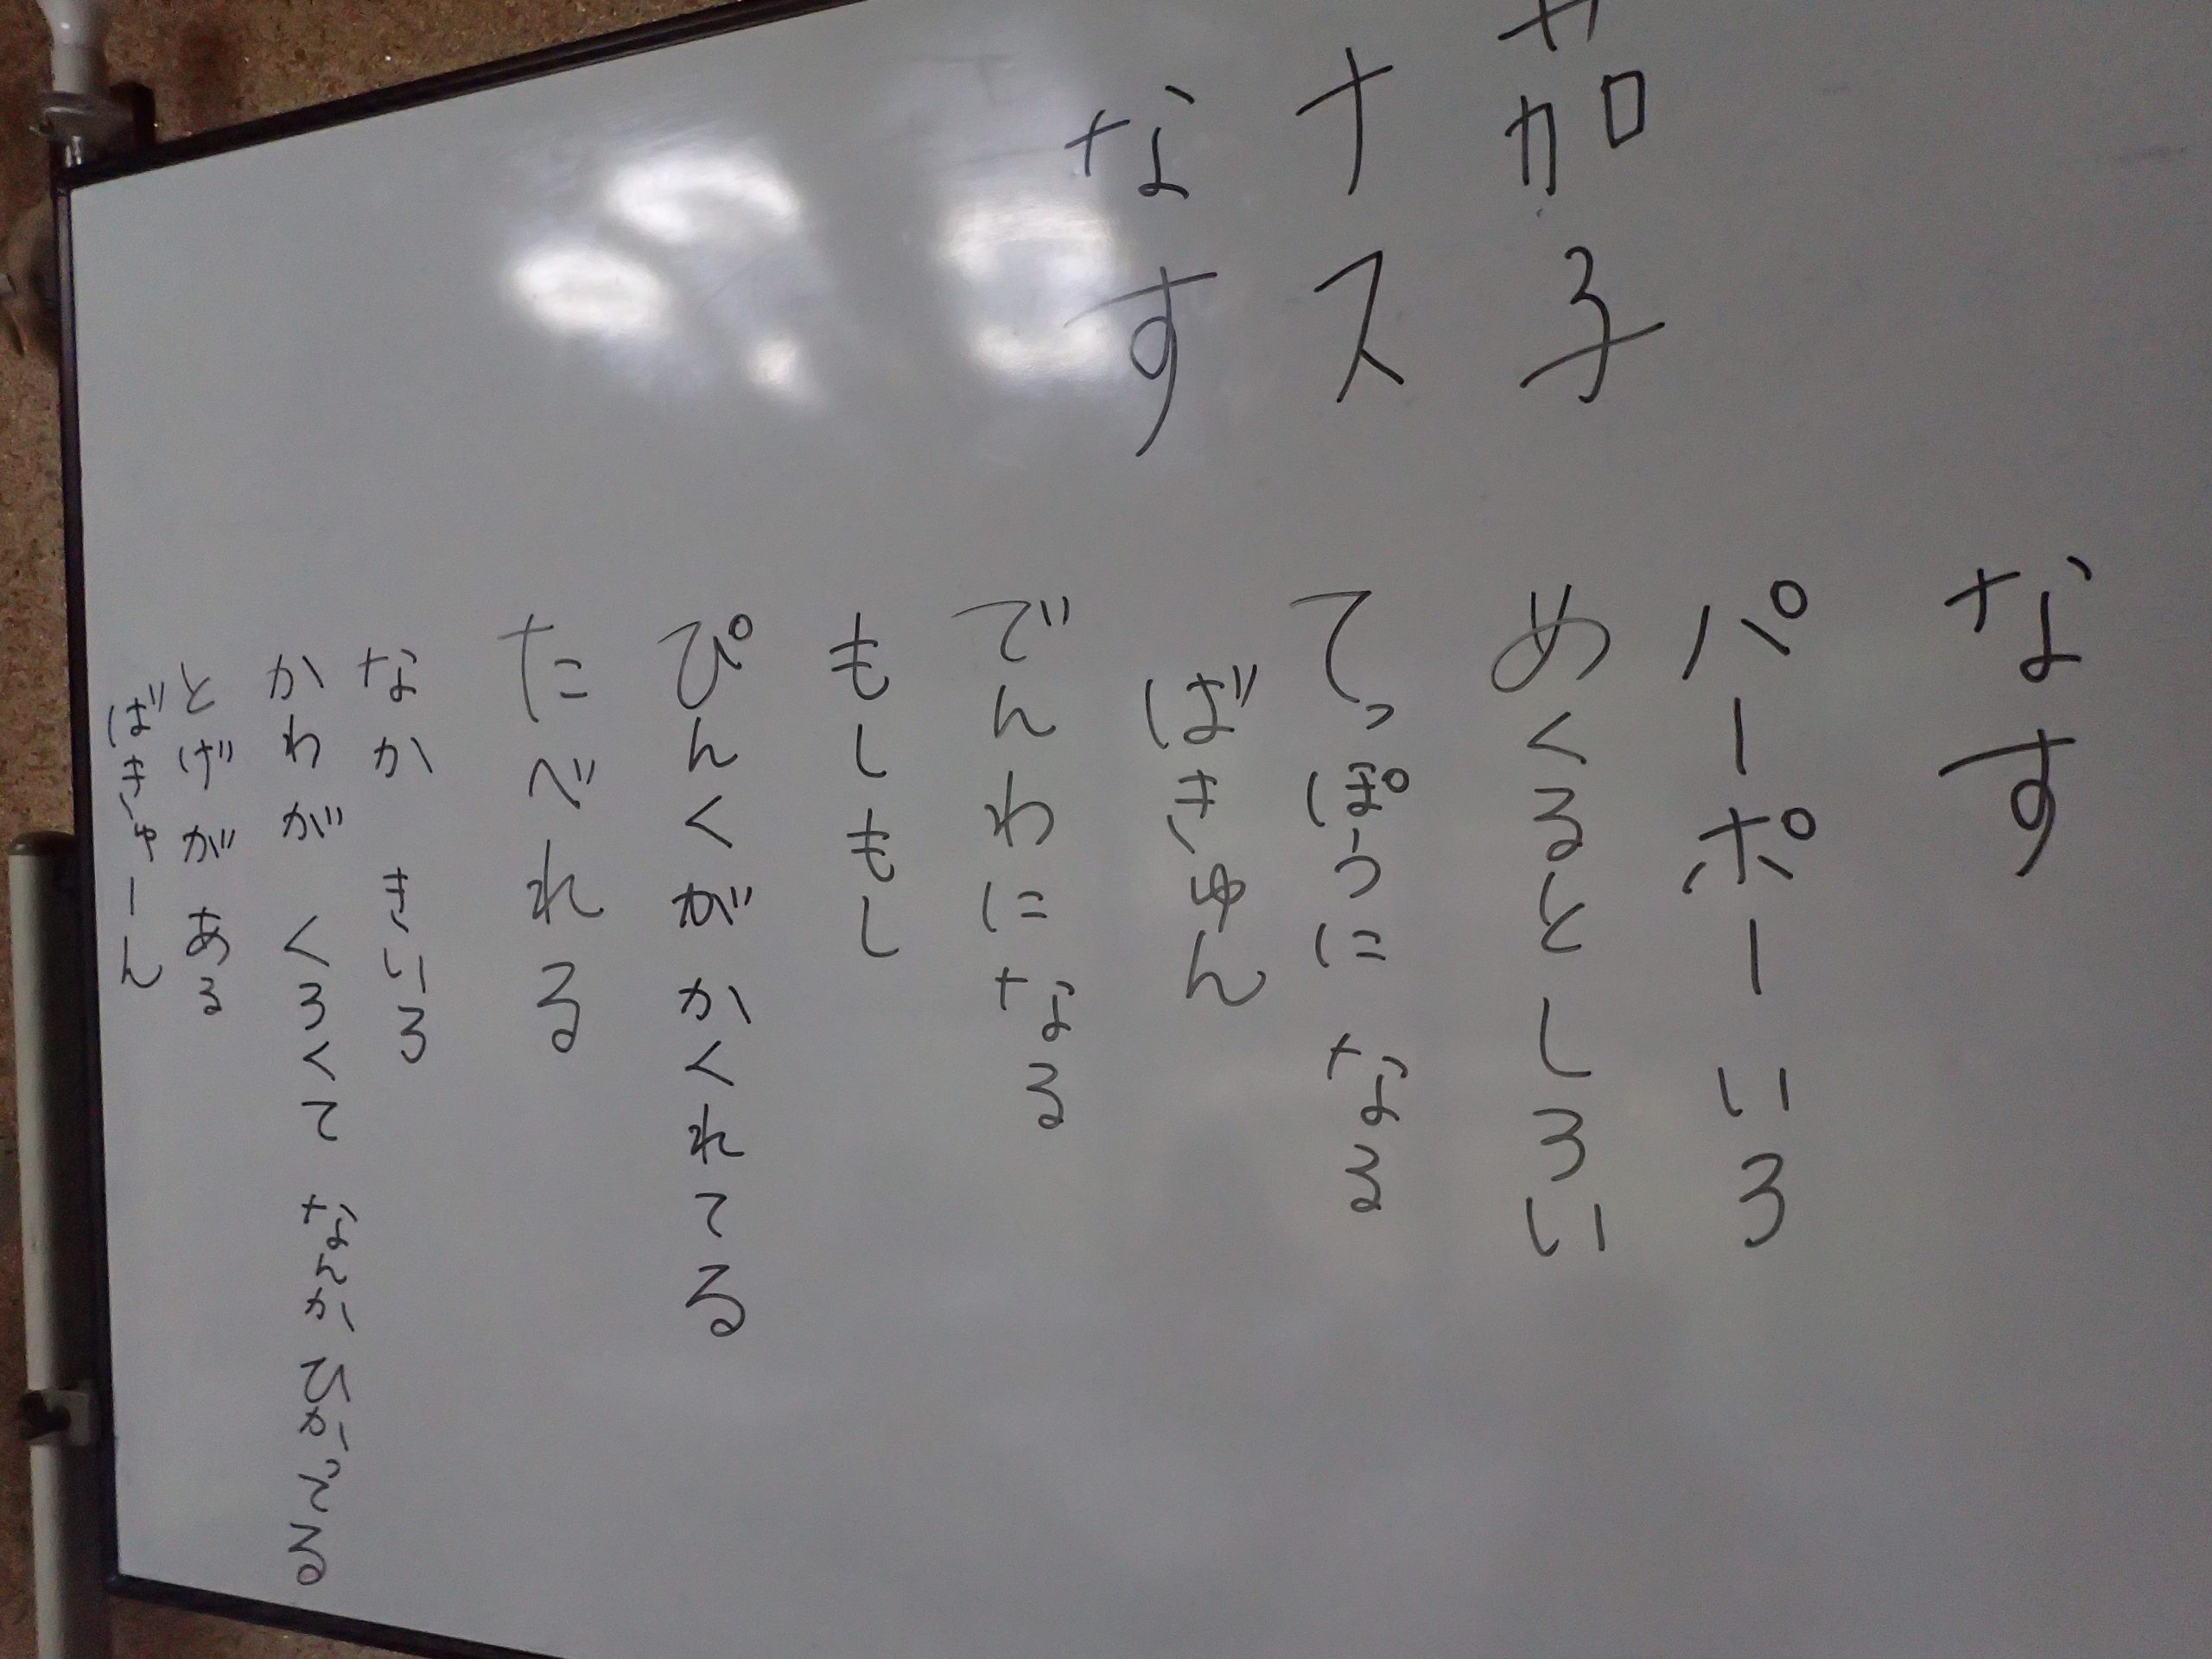 茄子
ナス
なす
なす
パーポーいろ
めくるとしろい
てっぽうに なる
ばきゅん
でんわに なる
もしもし
ぴんくがかくれてる
たべれる
なか きいろ
かわが くろくて なんか ひかってる
とげが ある
ばきゅーん